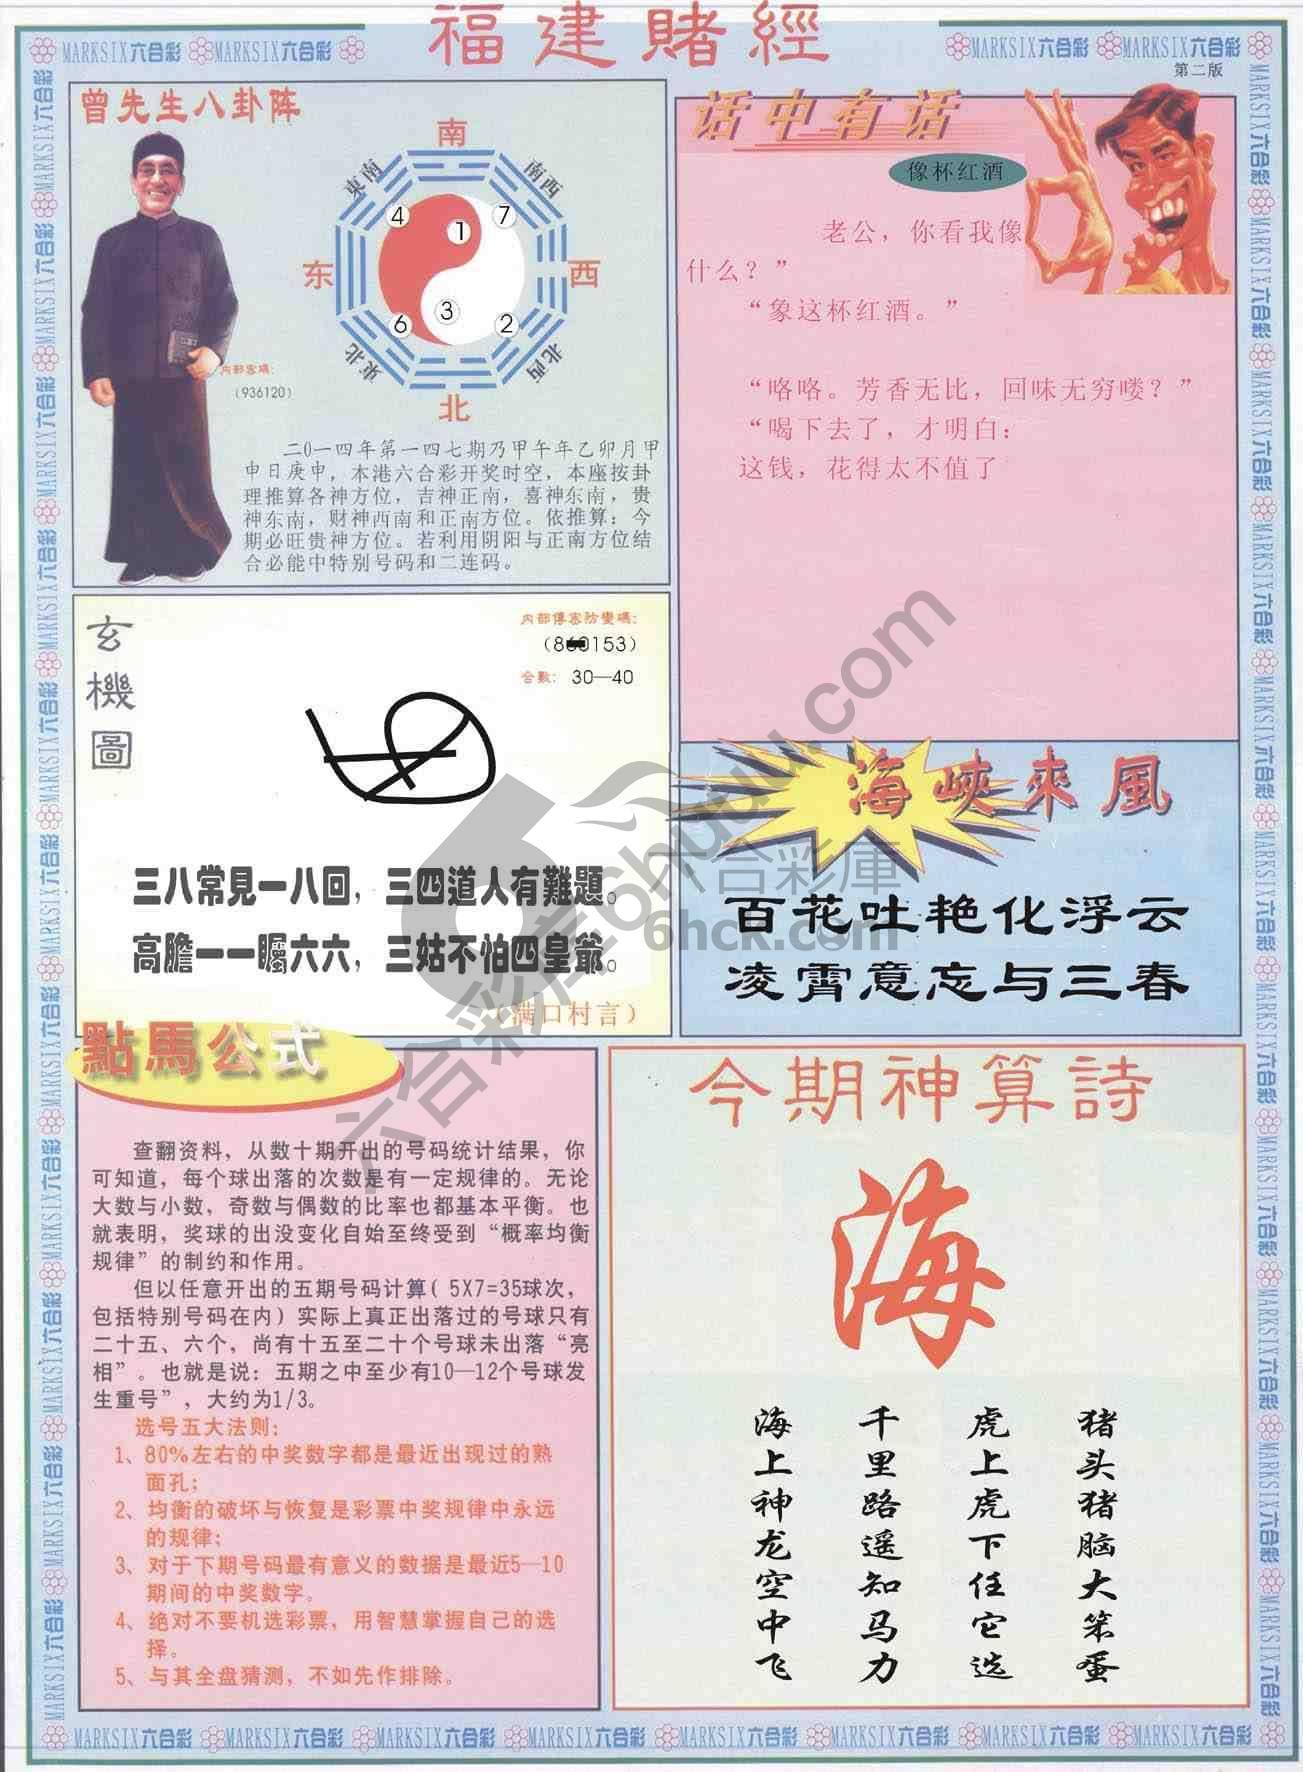 福建賭經
MARKSIX六合彩 MARKSIX六合彩
MARKSIX六合彩 MARKSIX六合彩
第二版
曾先生八卦阵
南
東南
南西
4
1
7
东
西
6
3
2
東北
北西
北
内部密碼:
(936120)
二0一四年第一四七期乃甲午年乙卯月甲
申日庚申，本港六合彩开奖时空，本座按卦
理推算各神方位，吉神正南，喜神东南，贵
神东南，财神西南和正南方位。依推算：今
期必旺贵神方位。若利用阴阳与正南方位结
合必能中特别号码和二连码。
话中有话
像杯红酒
老公，你看我像
什么？”
“象这杯红酒。”
“咯咯。芳香无比，回味无穷喽？”
“喝下去了，才明白：
这钱，花得太不值了
玄機圖
内部傳密防變碼:
153)
合數: 30—40
三八常見一八回，三四道人有難題。
高瞻一一矚六六，三姑不怕四皇爺。
（满口村言）
海峽來風
百花吐艳化浮云
凌霄意忘与三春
點馬公式
查翻资料，从数十期开出的号码统计结果，你
可知道，每个球出落的次数是有一定规律的。无论
大数与小数，奇数与偶数的比率也都基本平衡。也
就表明，奖球的出没变化自始至终受到“概率均衡
规律”的制约和作用。
但以任意开出的五期号码计算( 5X7=35球次，
包括特别号码在内）实际上真正出落过的号球只有
二十五、六个，尚有十五至二十个号球未出落“亮
相”。也就是说：五期之中至少有10—12个号球发
生重号”，大约为1/3。
选号五大法则：
1、80%左右的中奖数字都是最近出现过的熟
面孔；
2、均衡的破坏与恢复是彩票中奖规律中永远
的规律；
3、对于下期号码最有意义的数据是最近5—10
期间的中奖数字。
4、绝对不要机选彩票，用智慧掌握自己的选
择。
5、与其全盘猜测，不如先作排除。
今期神算詩
海
海上神龙空中飞
千里路遥知马力
虎上虎下任它选
猪头猪脑大笨蛋
六合彩库6hhuuu.com
六合彩庫
6hck.com
MARKSIX六合彩 MARKSIX六合彩 MARKSIX六合彩 MARKSIX六合彩 MARKSIX六合彩 MARKSIX六合彩 MARKSIX六合彩 MARKSIX六合彩